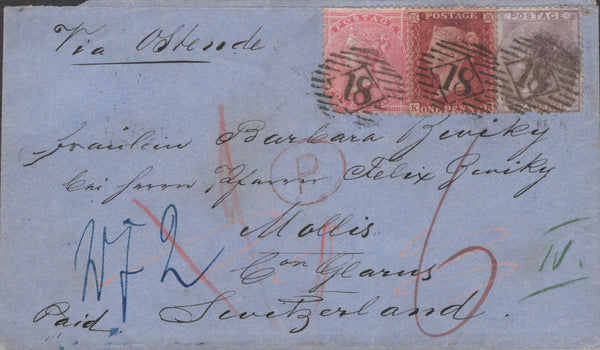 Via Ostende
POSTAGE POSTAGE POSTAGE
18 18 18
K ONE PENNY
Fräulein Barbara Zwiky
bei Herrn Pfarrer Felix Zwiky
P
Mollis
Con Glarus
Switzerland.
Paid
Wf 2
6
IV.